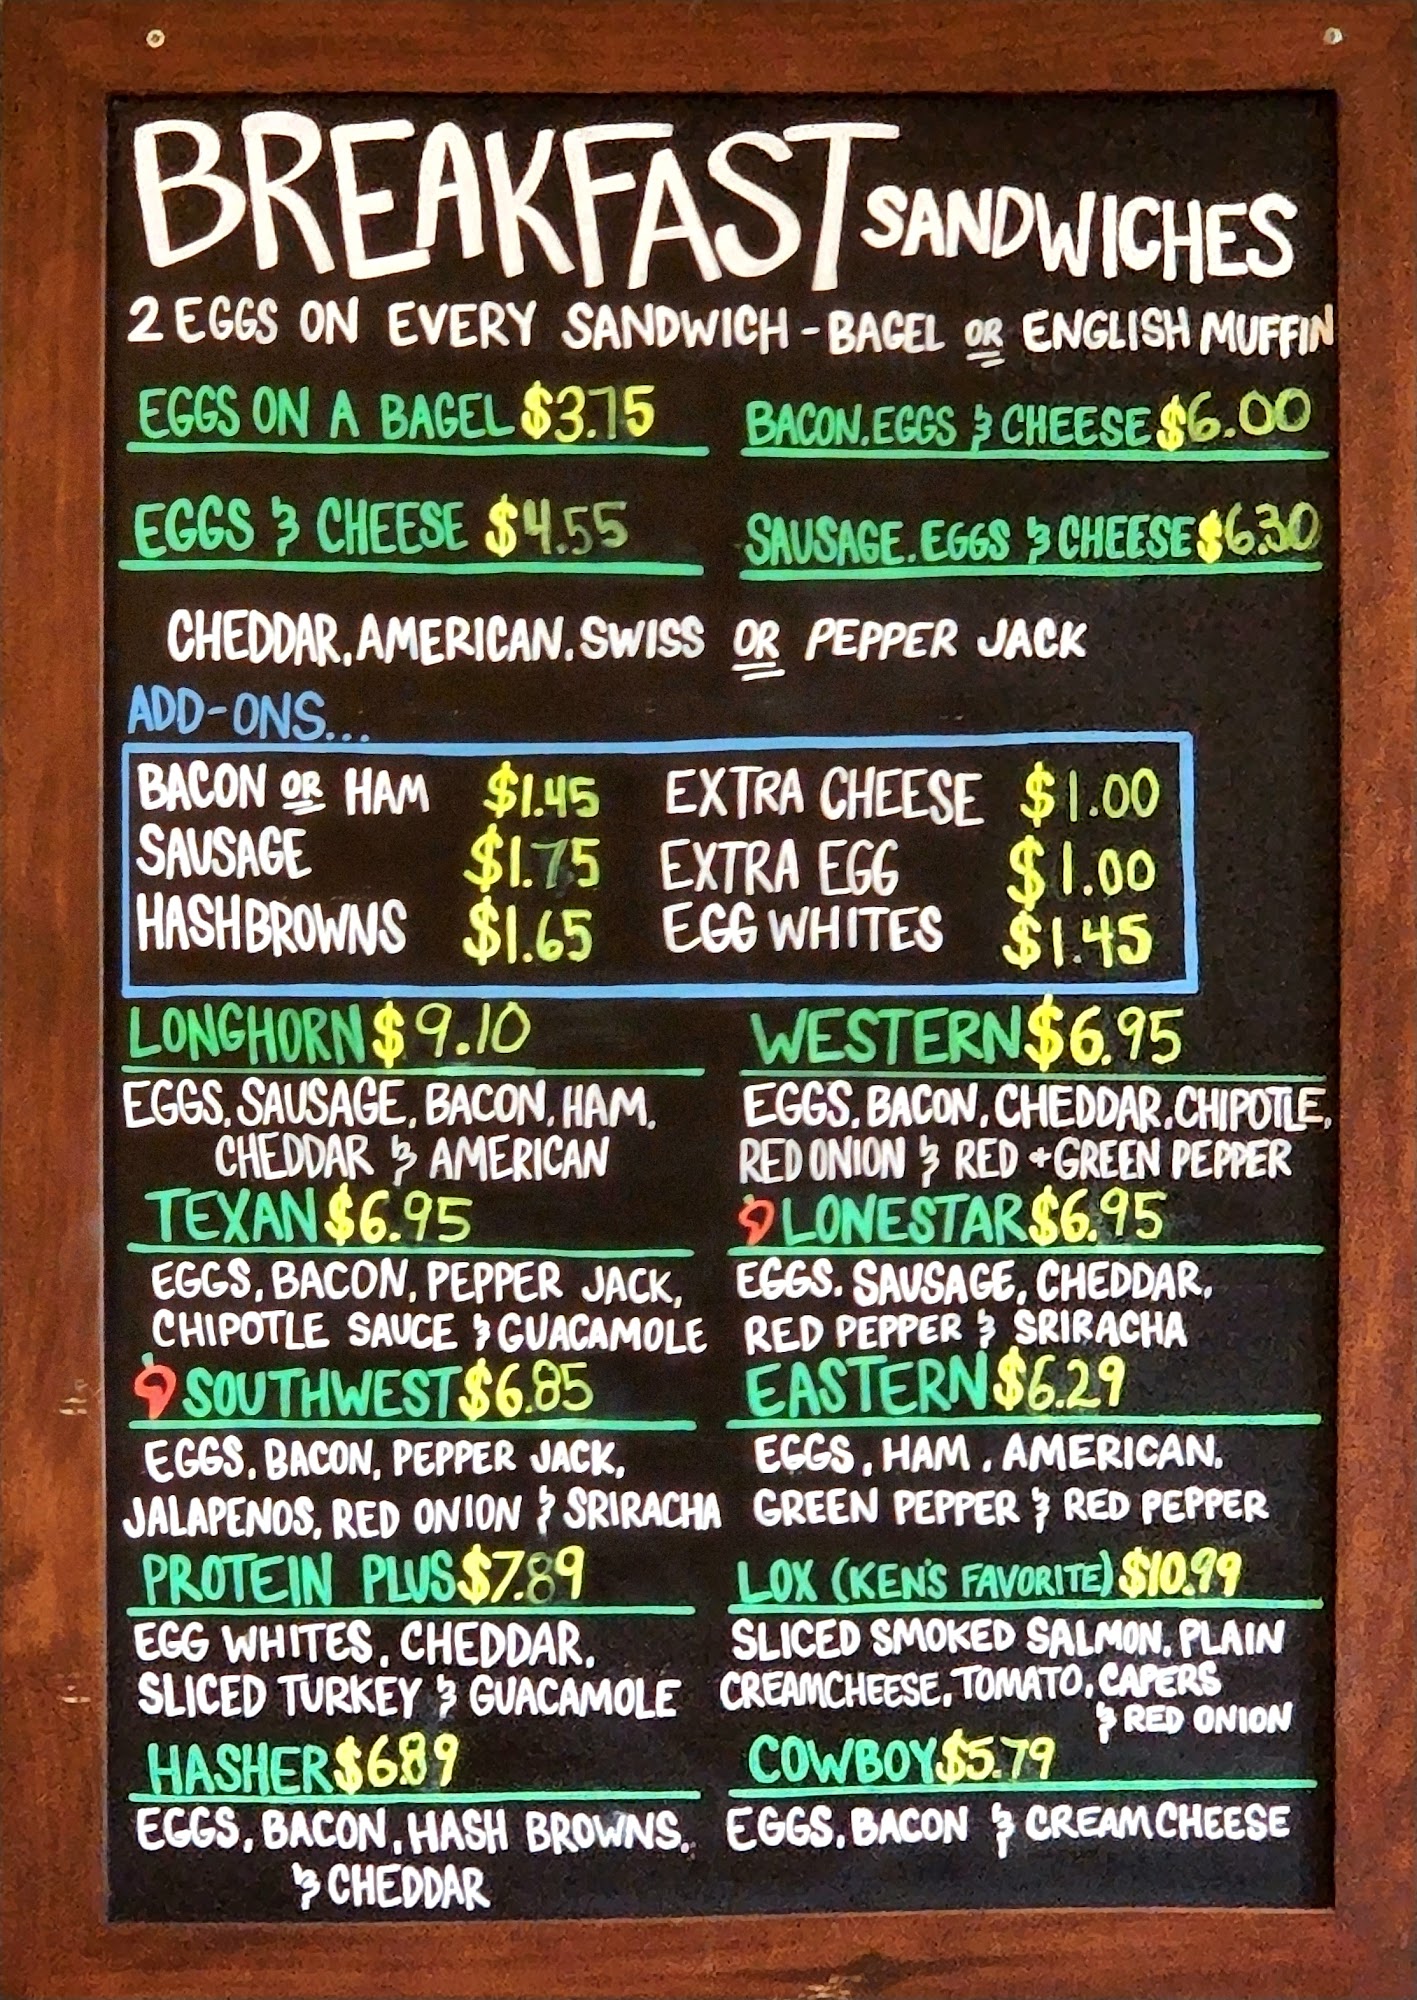 BREAKFAST SANDWICHES
2 EGGS ON EVERY SANDWICH - BAGEL OR ENGLISH MUFFIN
EGGS ON A BAGEL $3.75
BACON, EGGS & CHEESE $6.00
EGGS & CHEESE $4.55
SAUSAGE, EGGS & CHEESE $6.30
CHEDDAR, AMERICAN, SWISS OR PEPPER JACK
ADD-ONS...
BACON OR HAM $1.45
EXTRA CHEESE $1.00
SAUSAGE $1.75
EXTRA EGG $1.00
HASHBROWNS $1.65
EGG WHITES $1.45
LONGHORN $9.10
EGGS, SAUSAGE, BACON, HAM,
CHEDDAR & AMERICAN
WESTERN $6.95
EGGS, BACON, CHEDDAR, CHIPOTLE,
RED ONION & RED + GREEN PEPPER
TEXAN $6.95
EGGS, BACON, PEPPER JACK,
CHIPOTLE SAUCE & GUACAMOLE
LONESTAR $6.95
EGGS, SAUSAGE, CHEDDAR,
RED PEPPER & SRIRACHA
SOUTHWEST $6.85
EGGS, BACON, PEPPER JACK,
JALAPENOS, RED ONION & SRIRACHA
EASTERN $6.29
EGGS, HAM, AMERICAN,
GREEN PEPPER & RED PEPPER
PROTEIN PLUS $7.89
EGG WHITES, CHEDDAR,
SLICED TURKEY & GUACAMOLE
LOX (KEN'S FAVORITE) $10.99
SLICED SMOKED SALMON, PLAIN
CREAMCHEESE, TOMATO, CAPERS
& RED ONION
HASHER $6.89
EGGS, BACON, HASH BROWNS,
& CHEDDAR
COWBOY $5.79
EGGS, BACON & CREAM CHEESE